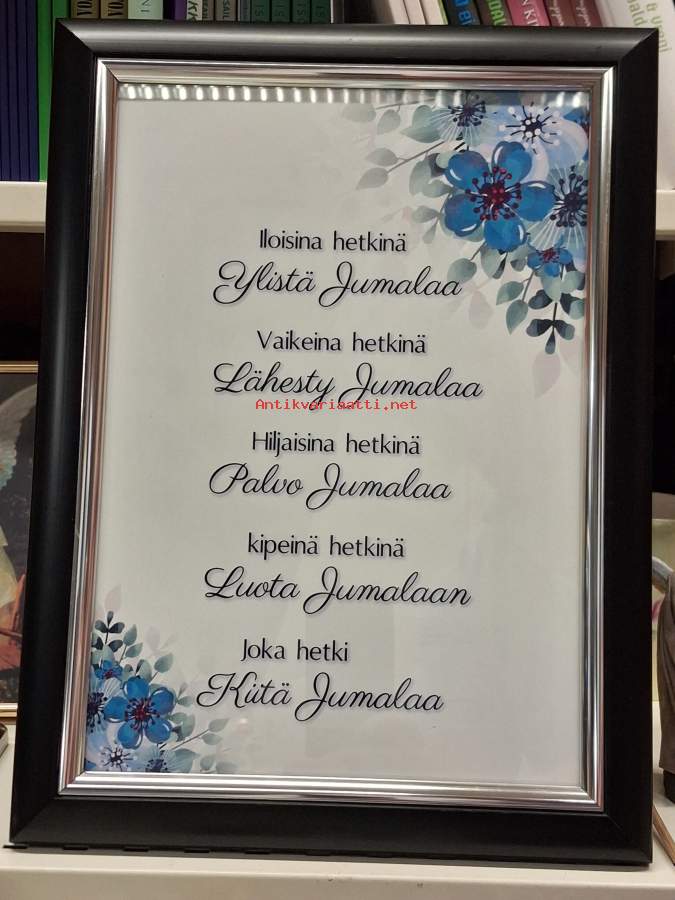 Iloisina hetkinä
Ylistä Jumalaa
Vaikeina hetkinä
Lähesty Jumalaa
Antikvariaatti.net
Hiljaisina hetkinä
Palvo Jumalaa
kipeinä hetkinä
Luota Jumalaan
Joka hetki
Kiitä Jumalaa